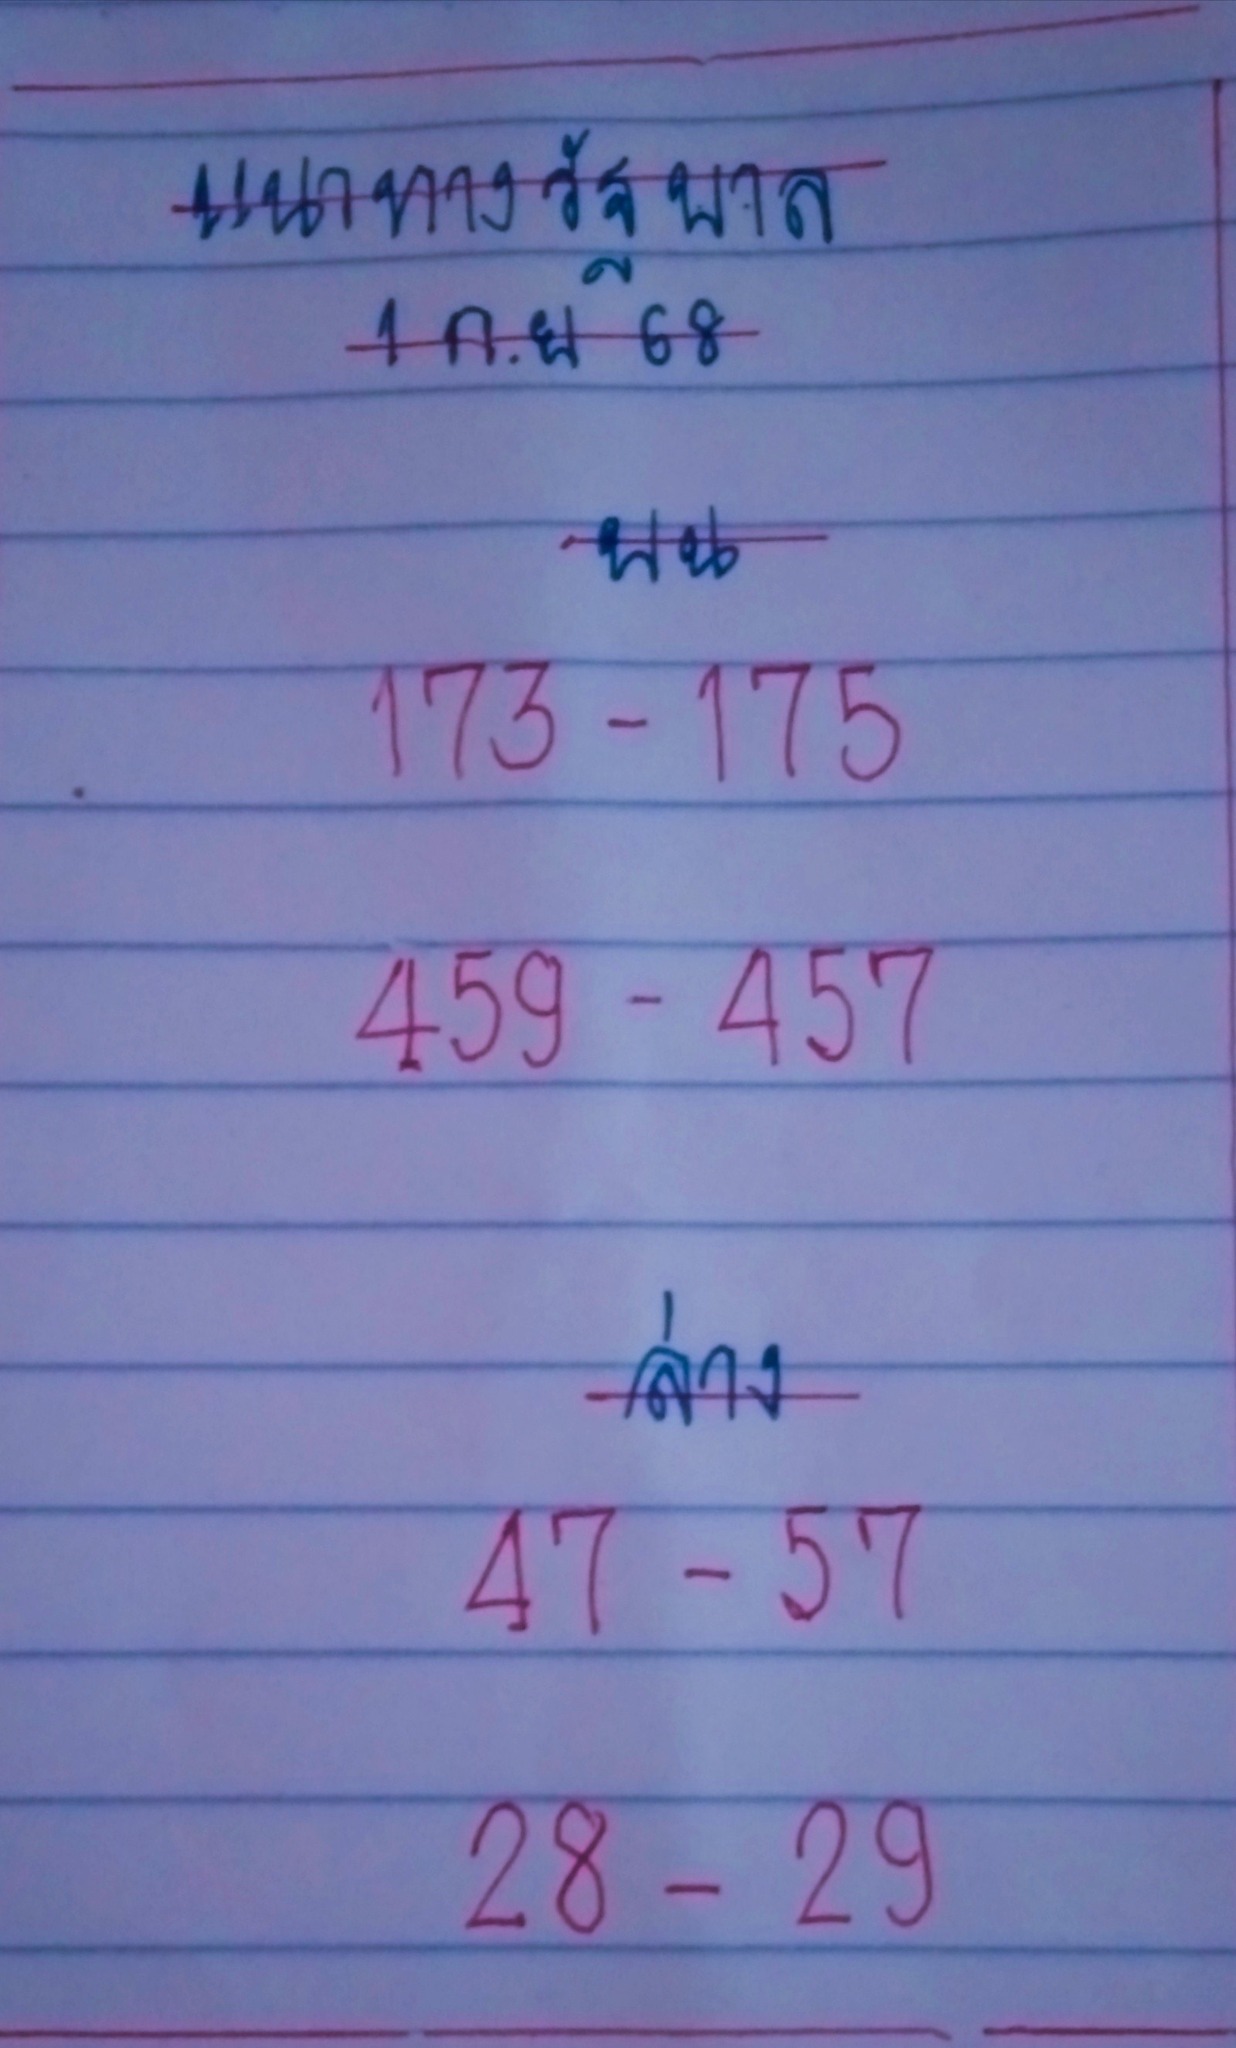 แนวทางรัฐบาล
1 ก.ย 68
บน
173 - 175
459 - 457
ล่าง
47 - 57
28 - 29